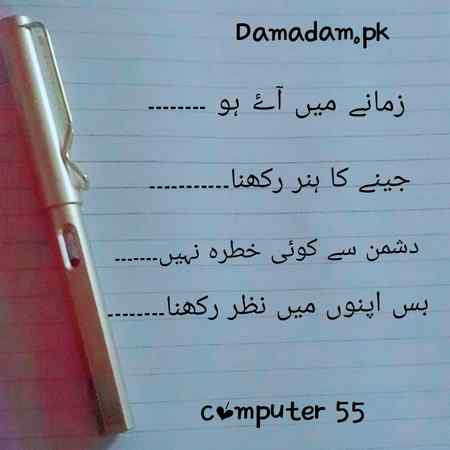 Damadam.pk
زمانے میں آۓ ہو --------
جینے کا ہنر رکھنا-----------
دشمن سے کوئی خطرہ نہیں-------
بس اپنوں میں نظر رکھنا--------
computer 55